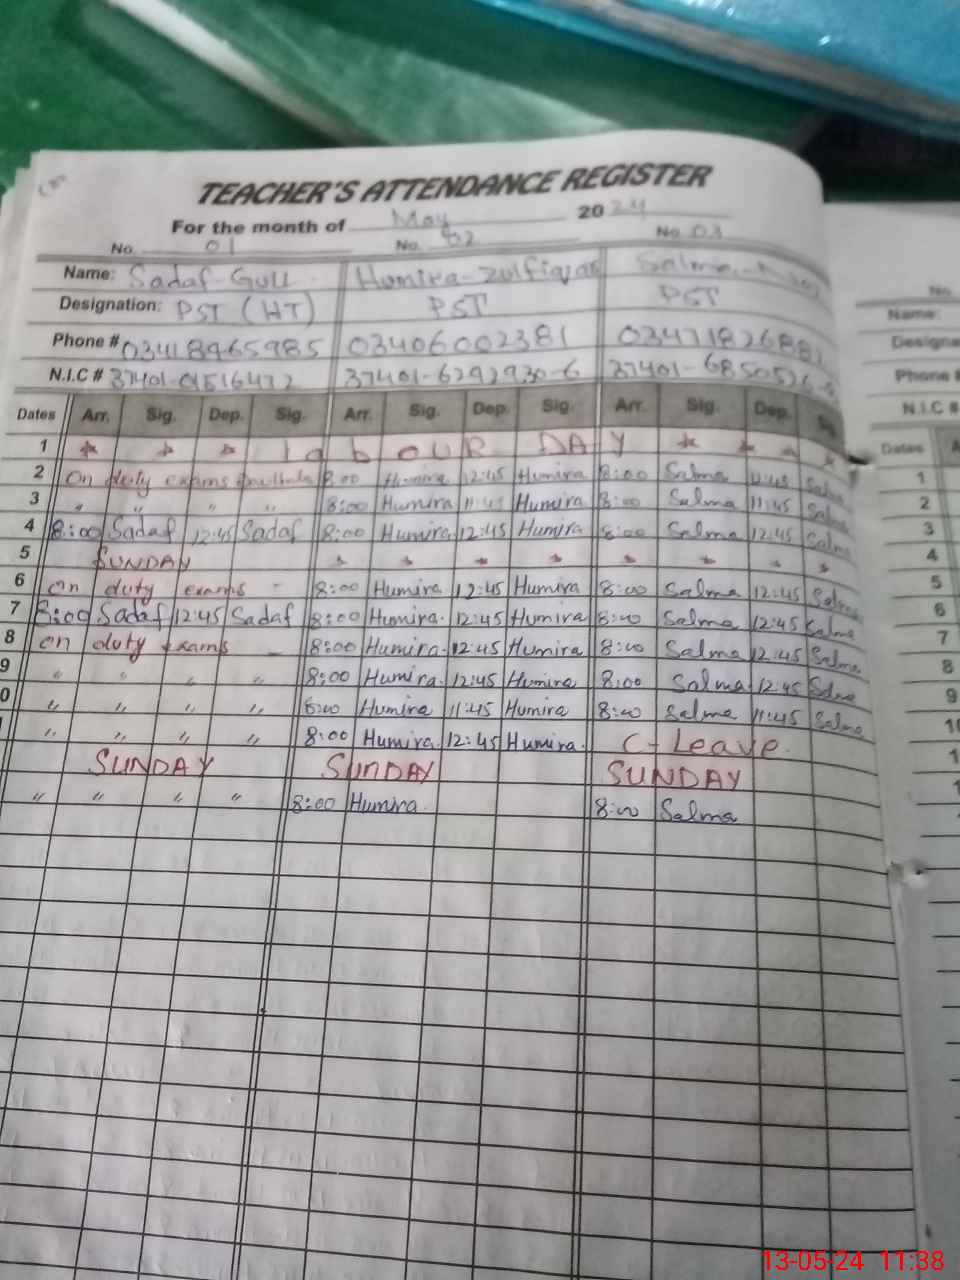 TEACHER'S ATTENDANCE REGISTER
For the month of May 2024
No. 01 No. 02 No. 03
Name: Sadaf-Gull. Humira-Zulfiqar Salma
Designation: PST (HT) PST PST
Phone # 03418965985 03406002381 0347182688
N.I.C # 37401-0151647 2 37401-6292930-6 37401-6850526-
Dates Arr. Sig. Dep. Sig. Arr. Sig. Dep. Sig. Arr. Sig. Dep. Sig.
1 * * * labOUR DAY * * * *
2 On duty exams 8:00 Humira 12:45 Humira 8:00 Salma 12:45 Salma
3 " " " " 8:00 Humira 11:45 Humira 8:00 Salma 11:45 Salma
4 8:00 Sadaf 12:45 Sadaf 8:00 Humira 12:45 Humira 8:00 Salma 12:45 Salma
5 SUNDAY * * * * * * * *
6 on duty exams - 8:00 Humira 12:45 Humira 8:00 Salma 12:45 Salma
7 8:00 Sadaf 12:45 Sadaf 8:00 Humira. 12:45 Humira 8:00 Salma 12:45 Salma
8 on duty exams - 8:00 Humira. 12:45 Humira 8:00 Salma 12:45 Salma
9 " " " " 8:00 Humira. 12:45 Humira 8:00 Salma 12:45 Salma
0 " " " " 8:00 Humira 11:45 Humira 8:00 Salma 11:45 Salma
" " " " 8:00 Humira. 12:45 Humira. C-Leave.
SUNDAY SUNDAY SUNDAY
" " " " 8:00 Humira. 8:00 Salma
No.
Name:
Designa
Phone #
N.I.C #
Dates A
1
2
3
4
5
6
7
8
9
10
1
1
1
13-05-24 11:38